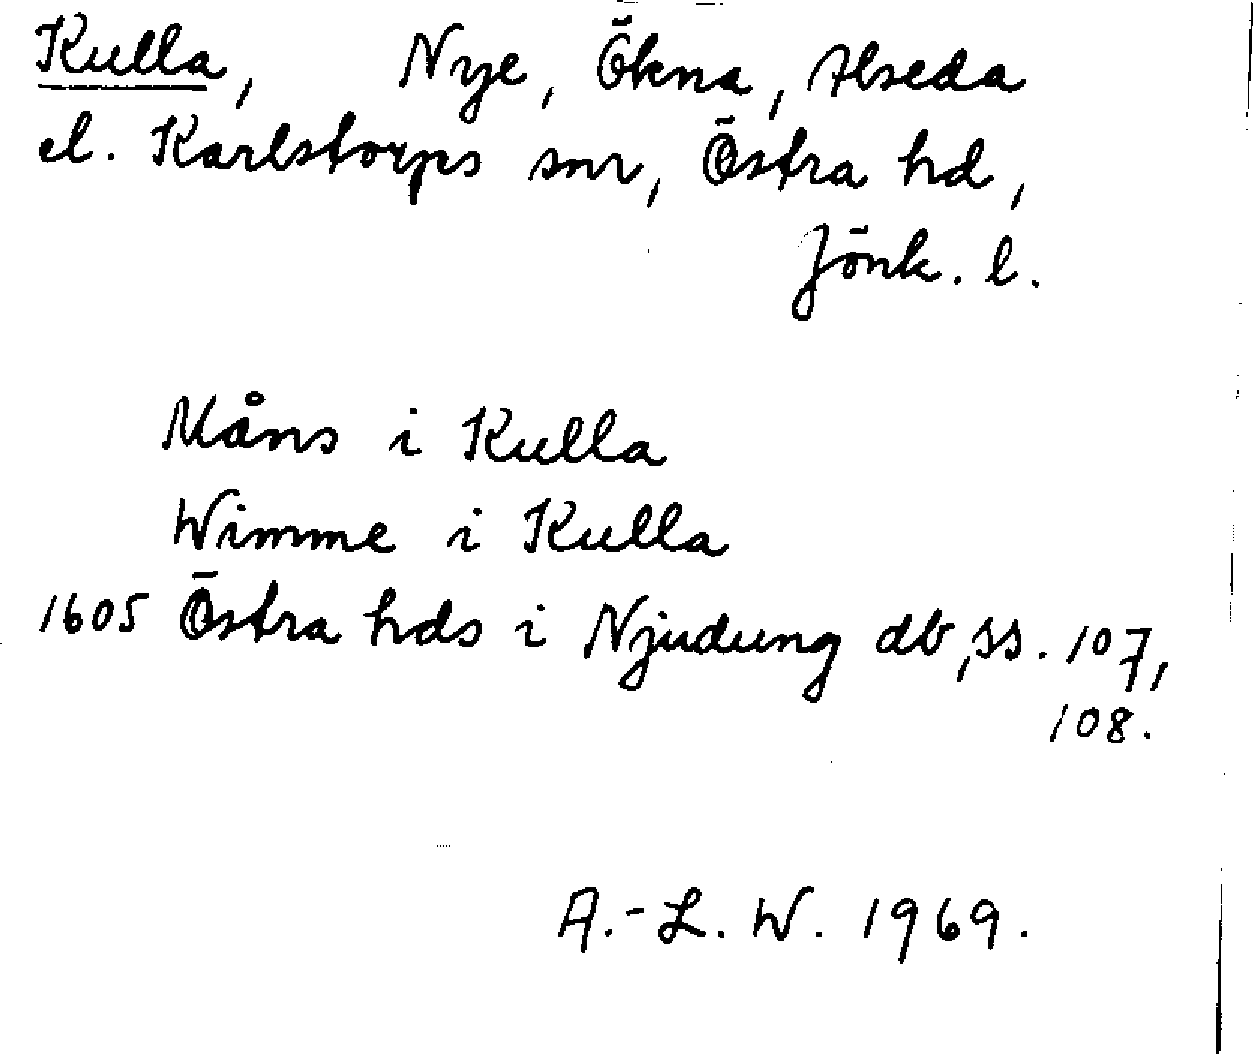 Kulla, Nye, Ökna, Alseda
el. Karlstorps snr, Östra hd,
Jönk. l.
Måns i Kulla
Wimme i Kulla
1605 Östra hds i Njudung db, ss. 107,
108.
A.-L. W. 1969.